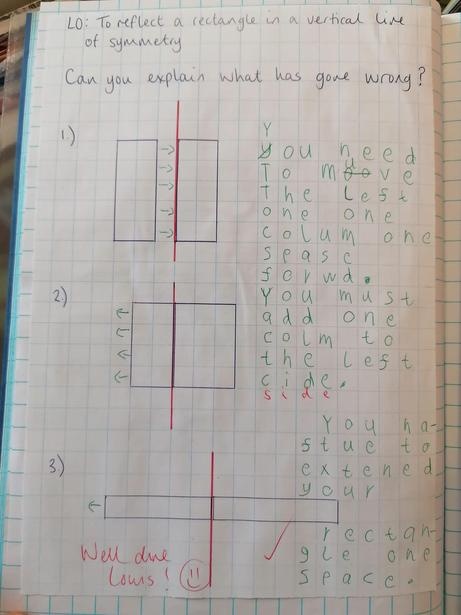 LO: To reflect a rectangle in a vertical line
of symmetry
Can you explain what has gone wrong?
1.)
You need
To move
The left
one one
colum one
spasc
forwd.
2.)
You must
add one
colm to
the left
cide.
side
3.)
You ha-
stue to
extened
your
rectan-
gle one
space.
Well done
Louis!